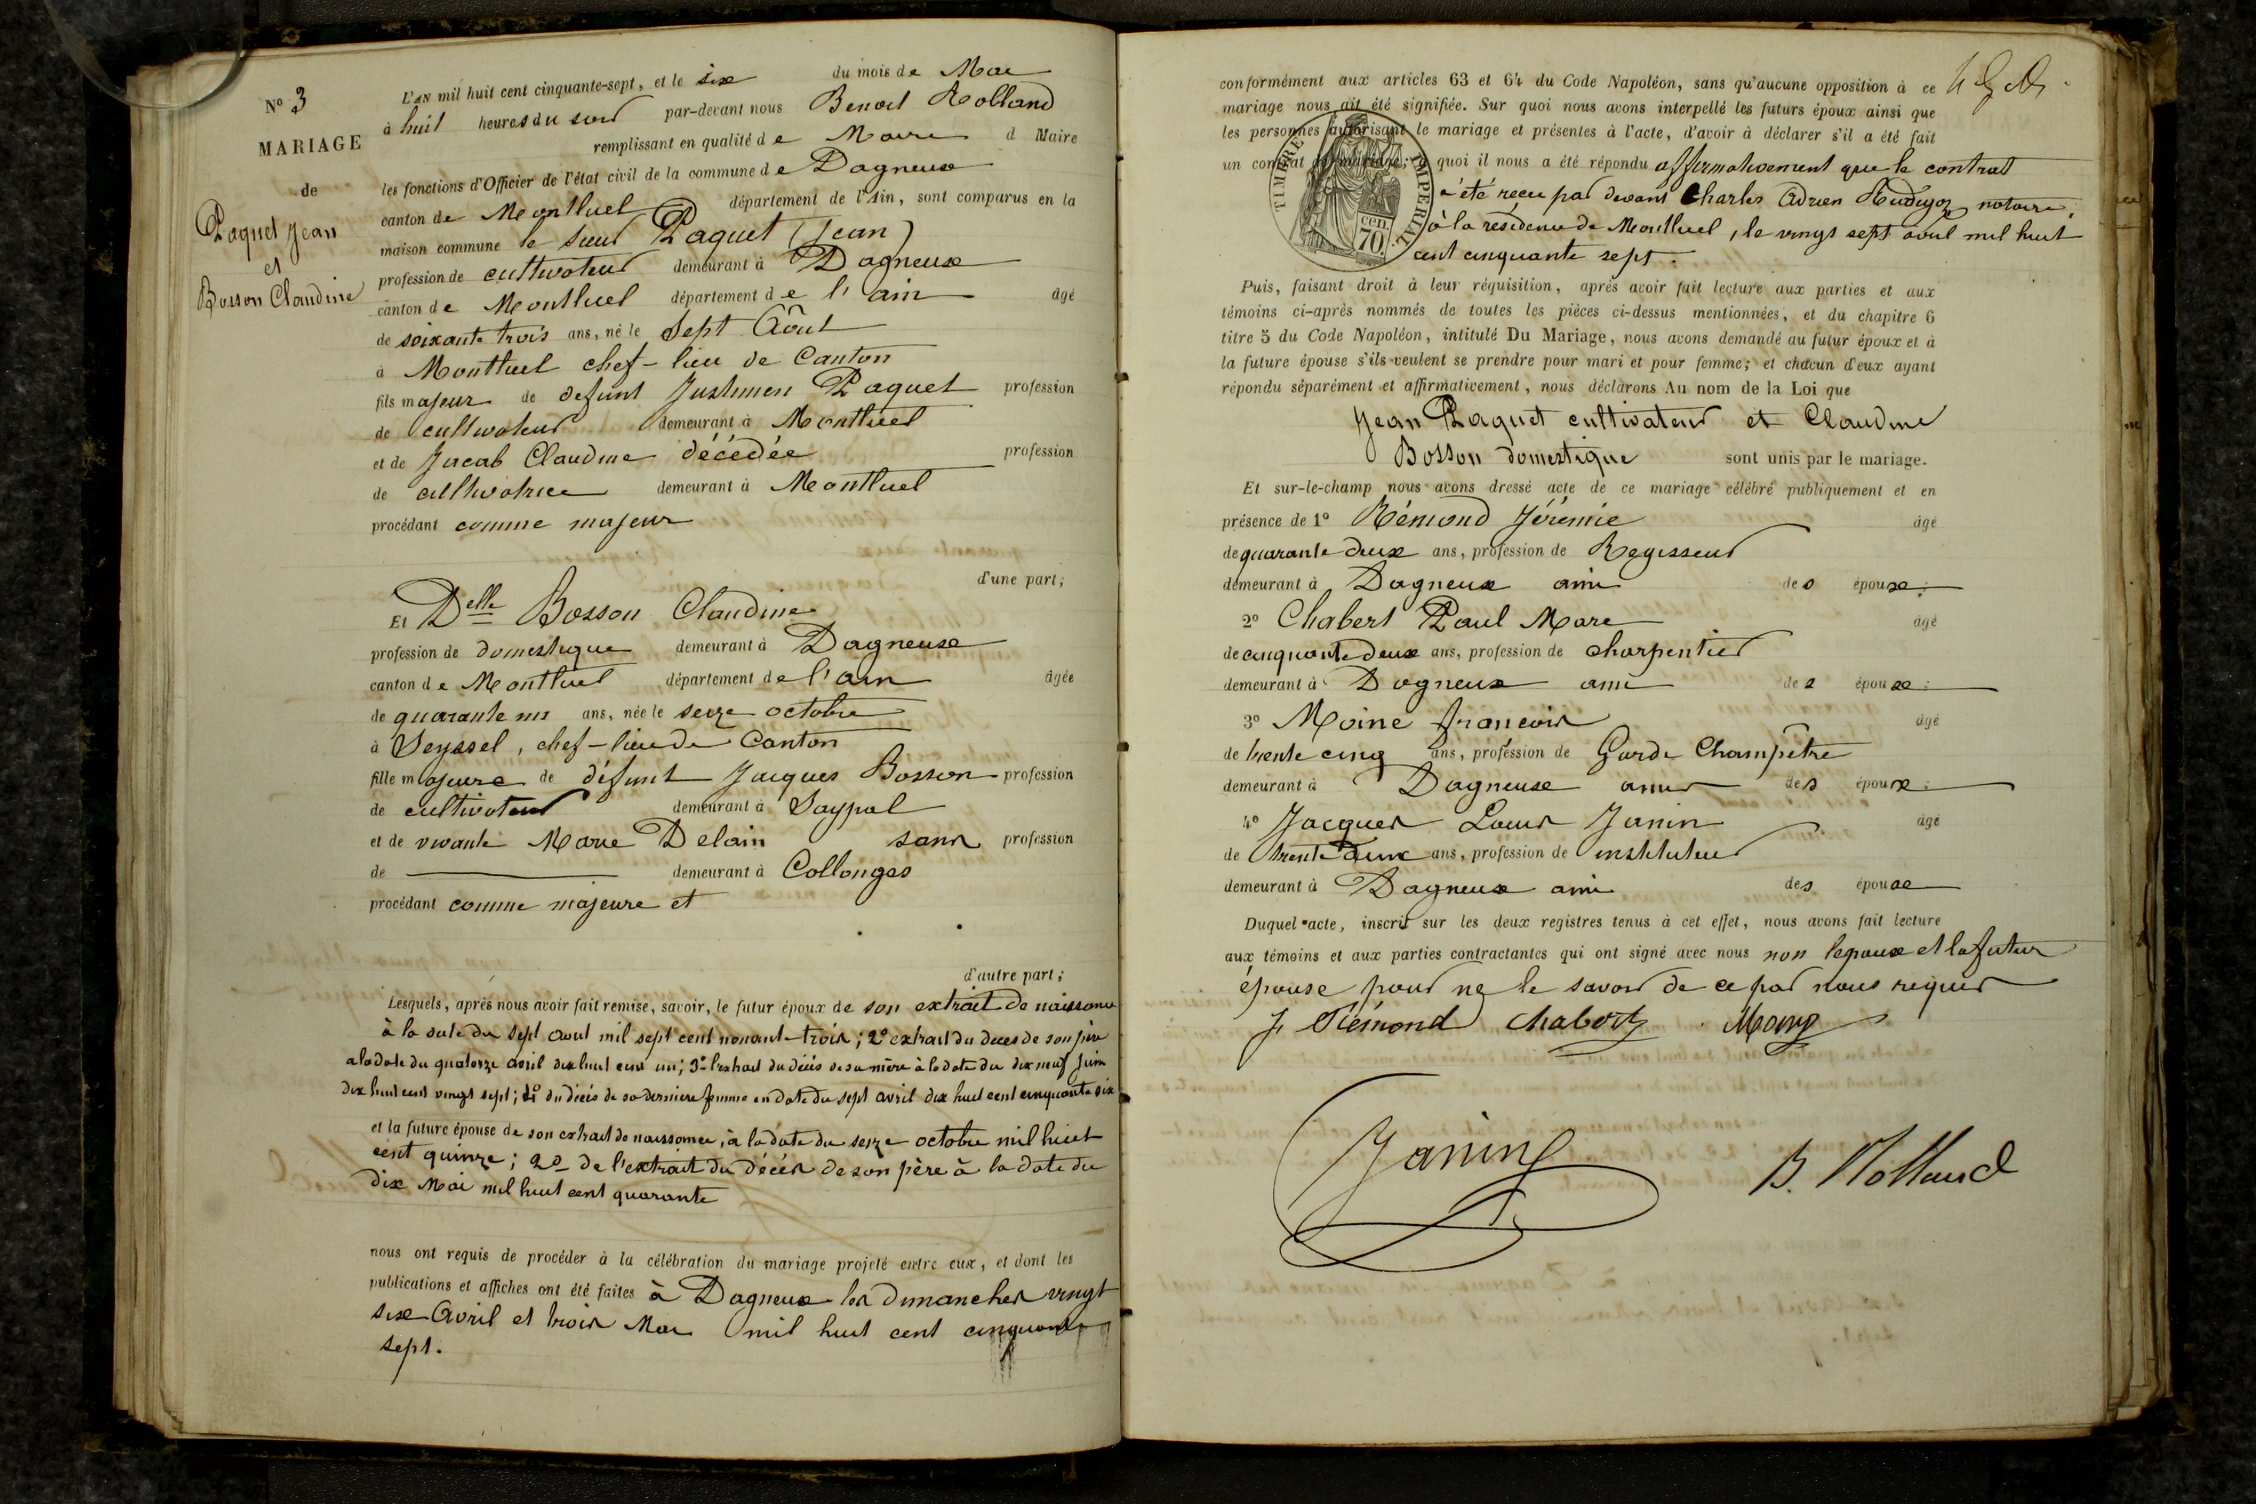 N° 3
MARIAGE
de
Paquet Jean
et
Bosson Claudine
L'AN mil huit cent cinquante-sept, et le six du mois de Mai
à huit heures du soir par-devant nous Benoit Rolland
remplissant en qualité de Maire d Maire
les fonctions d'Officier de l'état civil de la commune de Dagneux
canton de Montluel département de l'Ain, sont comparus en la
maison commune le sieur Paquet (Jean)
profession de cultivateur demeurant à Dagneux
canton de Montluel département de l'ain âgé
de soixante trois ans, né le Sept Août
à Montluel chef-lieu de Canton
fils majeur de defunt Justinien Paquet profession
de cultivateur demeurant à Montluel
et de Jacab Claudine décédée profession
de cultivatrice demeurant à Montluel
procédant comme majeur
d'une part;
Et Delle Bosson Claudine
profession de domestique demeurant à Dagneux
canton de Montluel département de l'ain âgée
de quarante un ans, née le seize octobre
à Seyssel, chef-lieu de Canton
fille majeure de défunt Jacques Bosson profession
de cultivateur demeurant à Saypal
et de vivante Marie Delain sans profession
de demeurant à Collonges
procédant comme majeure et
d'autre part;
Lesquels, après nous avoir fait remise, savoir, le futur époux de son extrait de naissance
à la date du sept aout mil sept cent nonant-trois; 2° extrait du deces de son père
a la date du quatorze avril dix huit cent un; 3° l'extrait du décès de sa mère à la date du dix neuf Juin
dix huit cent vingt sept; 4° du décès de sa derniere femme en date du sept avril dix huit cent cinquante six
et la future épouse de son extrait de naissance, à la date du seize octobre mil huit
cent quinze; 2° de l'extrait du décès de son père à la date du
dix Mai mil huit cent quarante
nous ont requis de procéder à la célébration du mariage projeté entre eux, et dont les
publications et affiches ont été faites à Dagneux les dimanches vingt
six Avril et trois Mai mil huit cent cinquante
sept.
conformément aux articles 63 et 64 du Code Napoléon, sans qu'aucune opposition à ce
mariage nous ait été signifiée. Sur quoi nous avons interpellé les futurs époux ainsi que
les personnes autorisant le mariage et présentes à l'acte, d'avoir à déclarer s'il a été fait
un contrat de mariage; à quoi il nous a été répondu affirmativement que le contrat
a été reçu par devant Charles Adrien notaire,
à la résidence de Montluel, le vingt sept avril mil huit
cent cinquante sept.
TIMBRE IMPERIAL
cen
70
Puis, faisant droit à leur réquisition, après avoir fait lecture aux parties et aux
témoins ci-après nommés de toutes les pièces ci-dessus mentionnées, et du chapitre 6
titre 5 du Code Napoléon, intitulé Du Mariage, nous avons demandé au futur époux et à
la future épouse s'ils veulent se prendre pour mari et pour femme; et chacun d'eux ayant
répondu séparément et affirmativement, nous déclarons Au nom de la Loi que
Jean Paquet cultivateur et Claudine
Bosson domestique sont unis par le mariage.
Et sur-le-champ nous avons dressé acte de ce mariage célébré publiquement et en
présence de 1° Rémond Jérémie âgé
de quarante deux ans, profession de Regisseur
demeurant à Dagneux ami des époux;
2° Chabert Paul Marc âgé
de cinquante deux ans, profession de charpentier
demeurant à Dagneux ami des époux;
3° Moine francois âgé
de trente cinq ans, profession de Garde Champêtre
demeurant à Dagneux ami des époux;
4° Jacques Louis Janin âgé
de trente deux ans, profession de instituteur
demeurant à Dagneux ami des époux
Duquel acte, inscrit sur les deux registres tenus à cet effet, nous avons fait lecture
aux témoins et aux parties contractantes qui ont signé avec nous non l'epoux et la futur
épouse pour ne le savoir de ce par nous requis
J. Rémond Chabert
Janin
B. Rolland